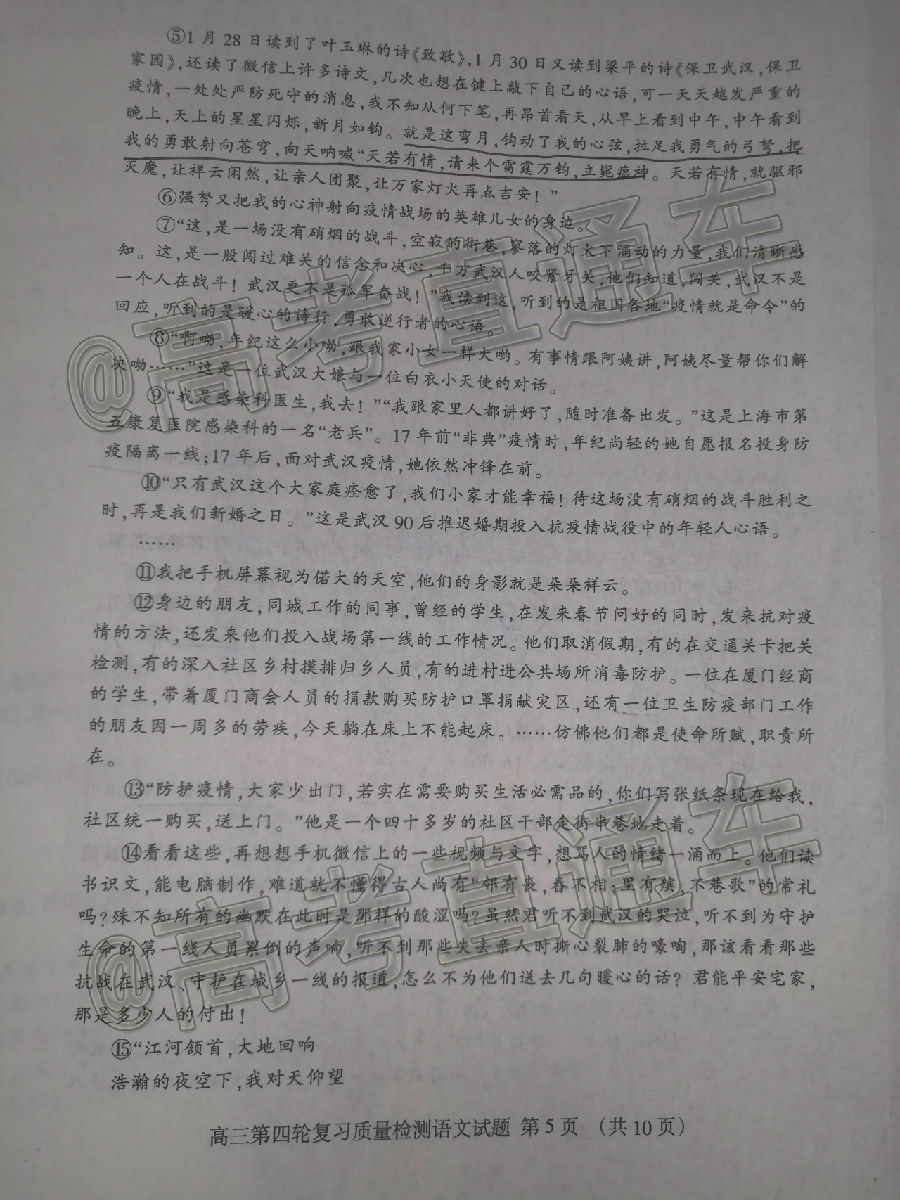 ⑤1月28日读到了叶玉琳的诗《致敬》,1月30日又读到梁平的诗《保卫武汉,保卫
家园》,还读了微信上许多诗文,几次也想在键上敲下自己的心语,可一天天越发严重的
疫情,一处处严防死守的消息,我不知从何下笔,再昂首看天,从早上看到中午,中午看到
晚上,天上的星星闪烁,新月如钩。就是这弯月,钩动了我的心弦,拉足我勇气的弓弩,把
我的勇敢射向苍穹,向天呐喊“天若有情,请来个雷霆万钧,立毙瘟神。天若有情,就驱邪
灭魔,让祥云闲然,让亲人团聚,让万家灯火再点吉安!”
⑥强弩又把我的心神射向疫情战场的英雄儿女的身边。
⑦“这,是一场没有硝烟的战斗,空寂的街巷,寥落的灯火下涌动的力量,我们清晰感
知。这,是一股闯过难关的信念和决心,千万武汉人咬紧牙关,他们知道,闯关,武汉不是
一个人在战斗!武汉更不是孤军奋战!”我读到这,听到的是祖国各地“疫情就是命令”的
回应,听到的是暖心的诗行,勇敢逆行者的心语。
⑧“啊呦,年纪这么小呦,跟我家小女一样大哟。有事情跟阿姨讲,阿姨尽量帮你们解
决呦……”这是一位武汉大嫂与一位白衣小天使的对话。
⑨“我是感染科医生,我去!”“我跟家里人都讲好了,随时准备出发。”这是上海市第
五康复医院感染科的一名“老兵”。17年前“非典”疫情时,年纪尚轻的她自愿报名投身防
疫隔离一线;17年后,面对武汉疫情,她依然冲锋在前。
⑩“只有武汉这个大家庭痊愈了,我们小家才能幸福!待这场没有硝烟的战斗胜利之
时,再是我们新婚之日。”这是武汉90后推迟婚期投入抗疫情战役中的年轻人心语。
……
⑪我把手机屏幕视为偌大的天空,他们的身影就是朵朵祥云。
⑫身边的朋友,同城工作的同事,曾经的学生,在发来春节问好的同时,发来抗对疫
情的方法,还发来他们投入战场第一线的工作情况。他们取消假期,有的在交通关卡把关
检测,有的深入社区乡村摸排归乡人员,有的进村进公共场所消毒防护。一位在厦门经商
的学生,带着厦门商会人员的捐款购买防护口罩捐献灾区,还有一位卫生防疫部门工作
的朋友因一周多的劳疾,今天躺在床上不能起床。……仿佛他们都是使命所赋,职责所
在。
⑬“防护疫情,大家少出门,若实在需要购买生活必需品的,你们写张纸条现在给我,
社区统一购买,送上门。”他是一个四十多岁的社区干部走街串巷地走着。
⑭看看这些,再想想手机微信上的一些视频与文字,想骂人的情绪一涌而上。他们读
书识文,能电脑制作,难道就不懂得古人尚有“邻有丧,舂不相;里有殡,不巷歌”的常礼
吗?殊不知所有的幽默在此时是那样的酸涩吗?虽然君听不到武汉的哭泣,听不到为守护
生命的第一线人员累倒的声响,听不到那些失去亲人时撕心裂肺的嚎啕,那该看看那些
抗战在武汉、守护在城乡一线的报道,怎么不为他们送去几句暖心的话?君能平安宅家,
那是多少人的付出!
⑮“江河颔首,大地回响
浩瀚的夜空下,我对天仰望
高三第四轮复习质量检测语文试题 第5页 (共10页)
@高考直通车
@高考直通车